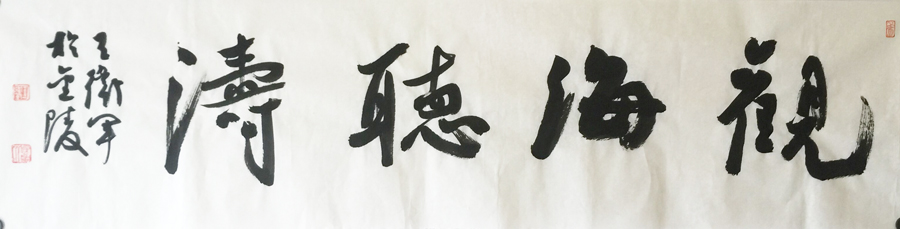 觀海聽濤
王衛軍
於金陵